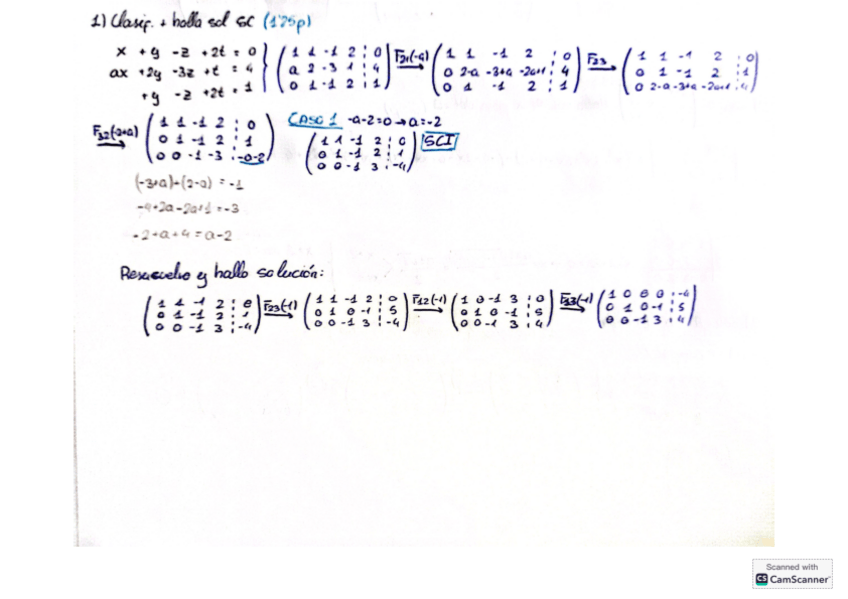 1) Clasif. + halla sol SC (1'25p)
x + y - z + 2t = 0
ax + 2y - 3z + t = 4
+ y - z + 2t = 1
1 1 -1 2 : 0
a 2 -3 1 : 4
0 1 -1 2 : 1
F21(-a)
1 1 -1 2 : 0
0 2-a -3+a -2a+1 : 4
0 1 -1 2 : 1
F23
1 1 -1 2 : 0
0 1 -1 2 : 1
0 2-a -3+a -2a+1 : 4
1 1 -1 2 : 0
0 1 -1 2 : 1
0 0 -1 -3 : -a-2
CASO 1 -a-2=0 → a=-2
1 1 -1 2 : 0
0 1 -1 2 : 1
0 0 -1 3 : -4
SCI
(-3+a)+(2-a) = -1
-4+2a-2a+1 = -3
-2+a+4 = a-2
Resuelvo y hallo solución:
1 1 -1 2 : 0
0 1 -1 2 : 1
0 0 -1 3 : -4
F23(-1)
1 1 -1 2 : 0
0 1 0 -1 : 5
0 0 -1 3 : -4
F12(-1)
1 0 -1 3 : 0
0 1 0 -1 : 5
0 0 -1 3 : 4
1 0 0 0 : -4
0 1 0 -1 : 5
0 0 -1 3 : 4
Scanned with
CS CamScanner